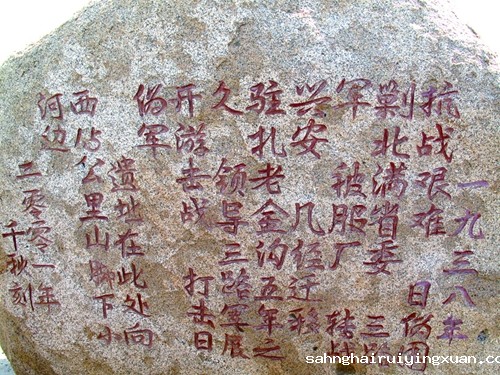 一九三八年
抗战艰难 日伪围
剿北满省委 三路
军 被服厂 转战
兴安 几经迁移
驻扎老金沟五年之
久 领导三路军展
开游击战 打击日
伪军
遗址在此处向
西 公里山脚下小
河边
二零零一年
千秋刻
sahnghairuiyingxuan.com